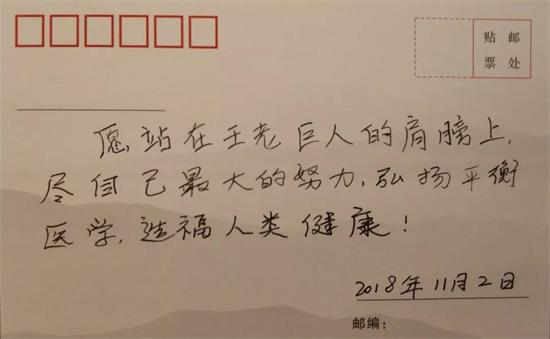 贴 邮
票 处
愿站在王老巨人的肩膀上,
尽自己最大的努力,弘扬平衡
医学,造福人类健康!
2018年11月2日
邮编: